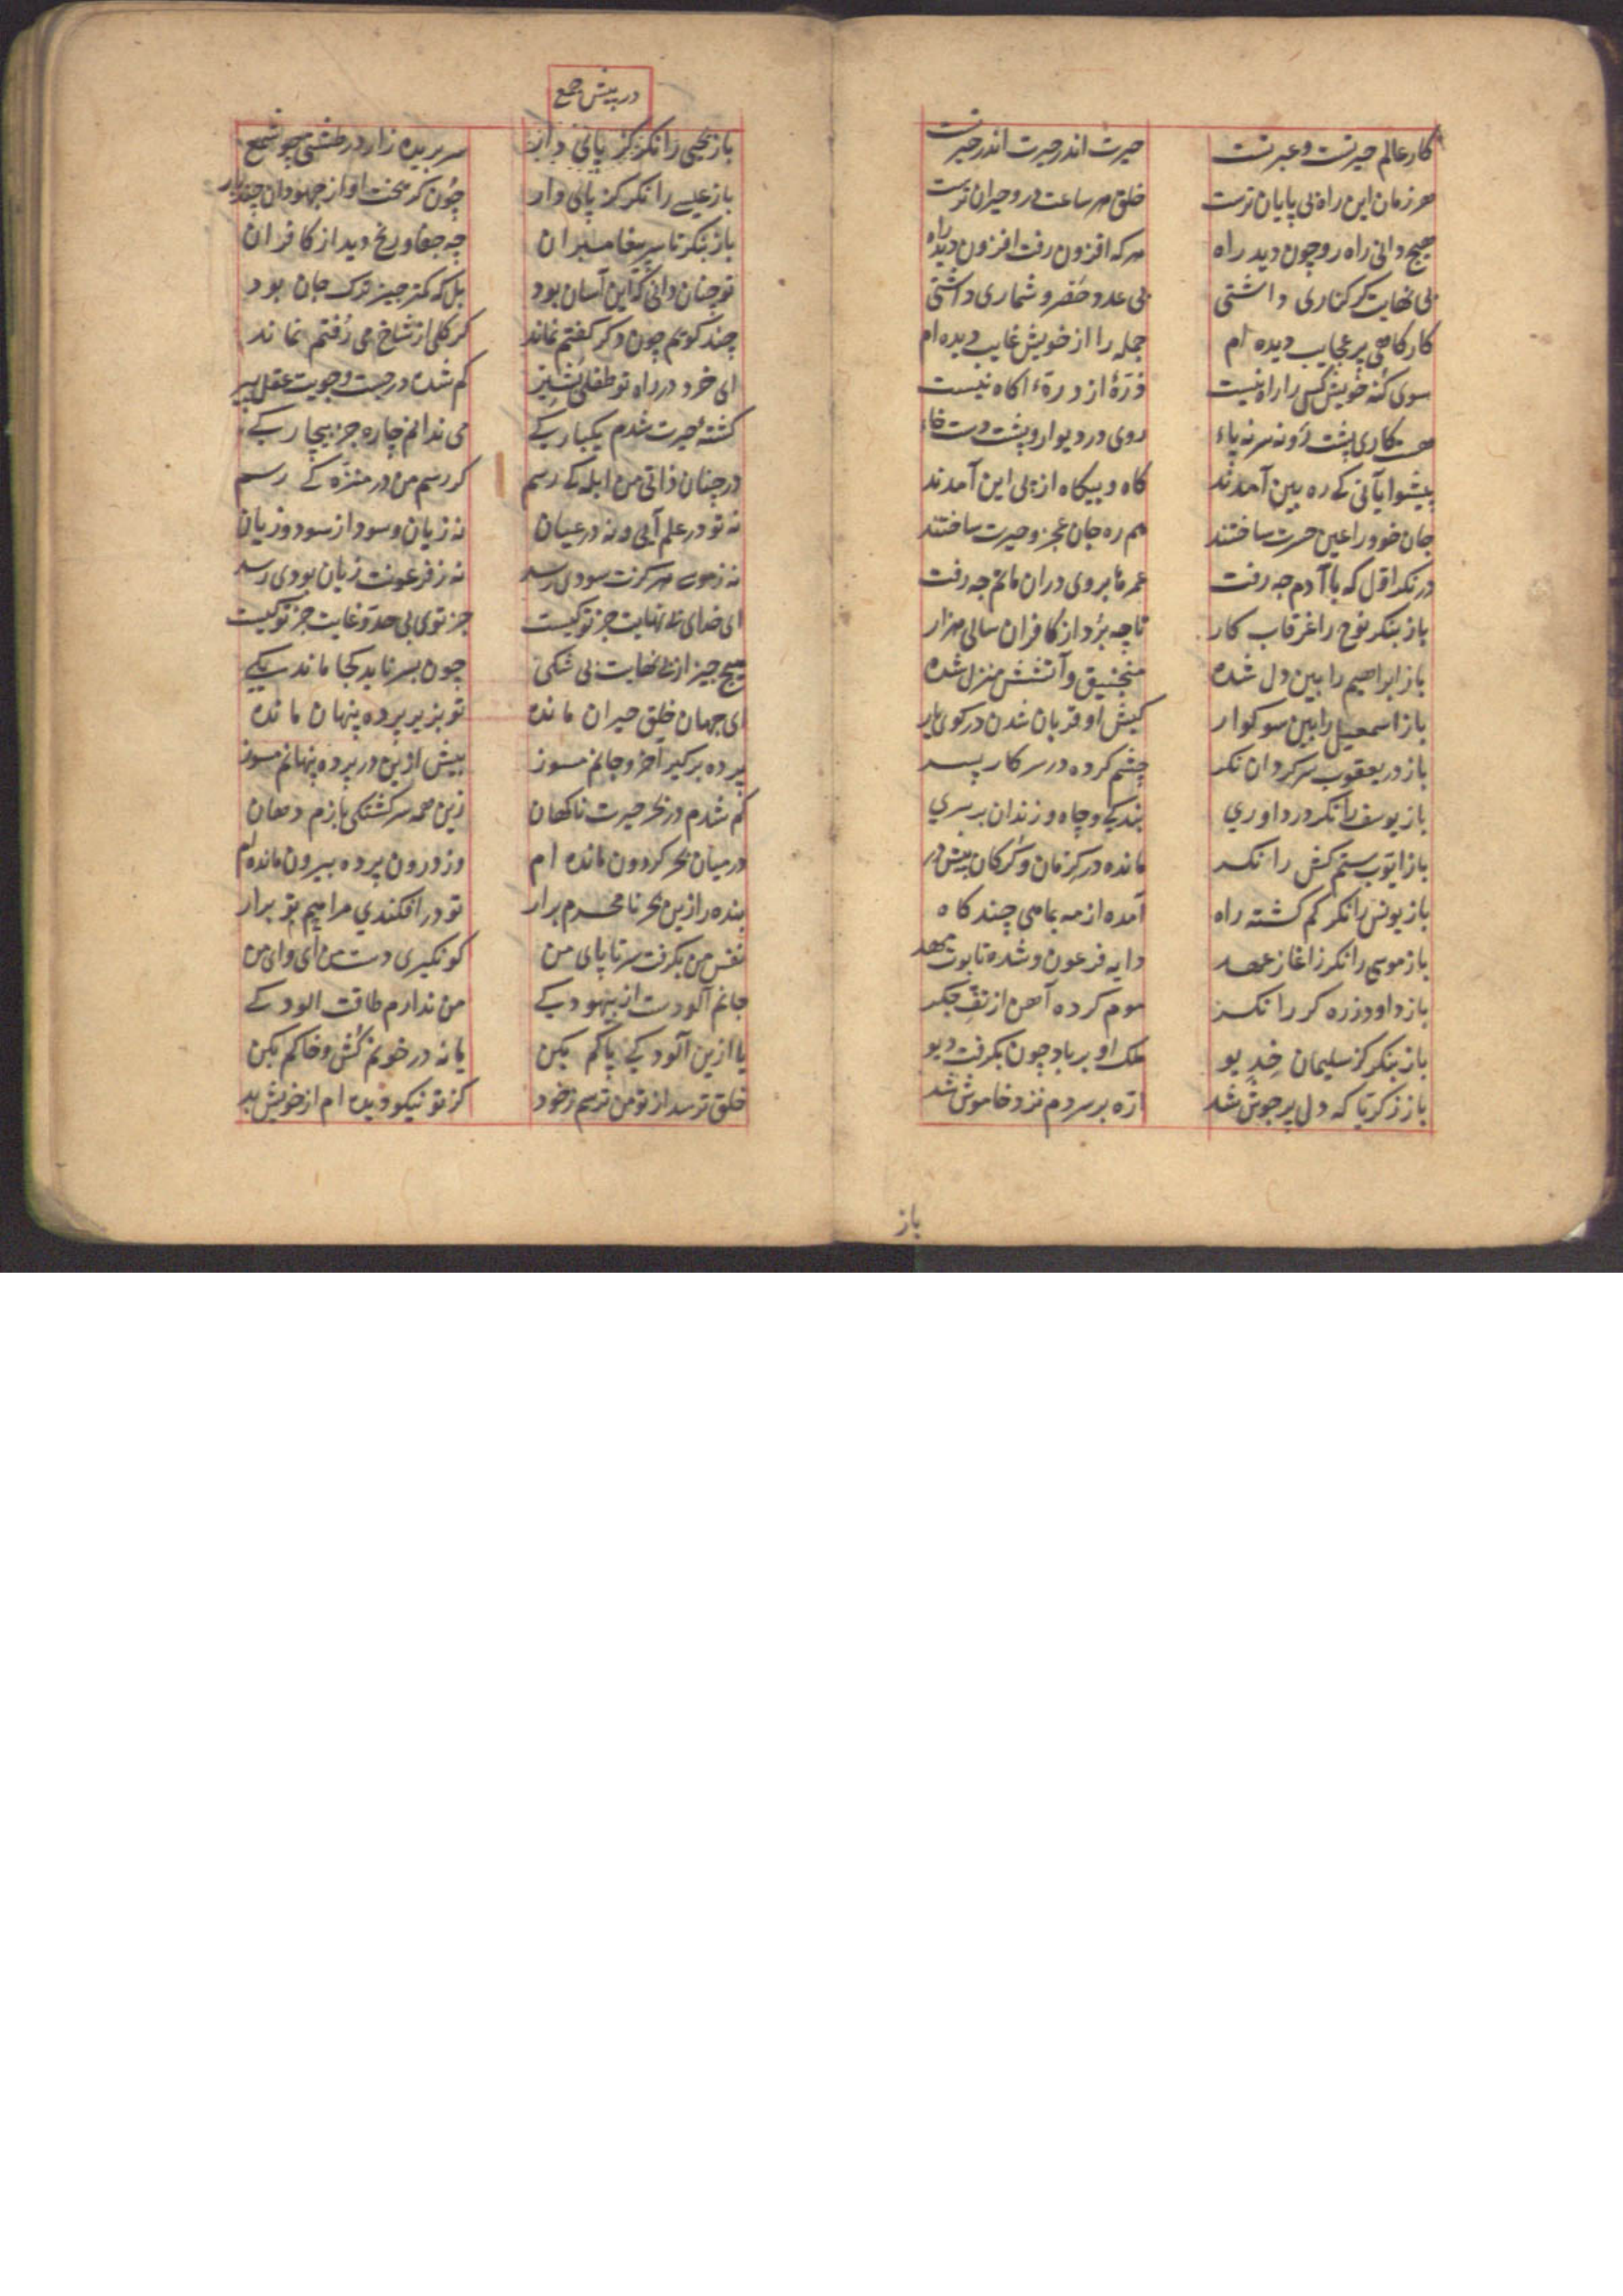 کار عالم حیرتست و عبرتست حیرت اندر حیرت اندر حیرتست
هر زمان این راه بی پایان ترست خلق هر ساعت درو حیران ترست
هیچ دانی راه رو چون دید راه هرکه افزون رفت افزون دید راه
بی نهایت کر کناری داشتی بی عدد حصر و شماری داشتی
کارکاهی پر عجایب دیده ام جمله را از خویش غایب دیده ام
سوی کنه خویش کس را راه نیست ذرّهٔ از ذرهٔ اکاه نیست
هست کاری پشت و رو نه سر نه پاء روی در دیوار و پشت دست خاء
پیشوایانی که ره بین آمدند کاه و بیکاه از پی این آمدند
جان خود را عین حسرت ساختند هم ره جان عجز و حیرت ساختند
درنکر اوّل که با آدم چه رفت عمرها بر وی دران ماتم چه رفت
باز بنکر نوح را غرقاب کار تا چه برد از کافران سالی هزار
باز ابراهیم را بین دل شده منجنیق و آتشش منزل شده
باز اسمعیل را بین سوکوار کیش او قربان شدن در کوی یار
باز در یعقوب سرکردان نکر چشم کرده در سر کار پسر
باز یوسف را نکر در داوری بندکی و چاه و زندان بر سری
باز ایّوب ستم کش را نکر مانده در کرمان و کرکان پیش در
باز یونس را نکر کم کشته راه آمده از مه بماهی چند کاه
باز موسی را نکر ز آغاز عهد دایه فرعون و شده تابوت مهد
باز داود زره کر را نکر موم کرده آهن از تفّ جکر
باز بنکر کز سلیمان خدیو ملک او بر باد چون بکرفت دیو
باز زکریا که دل پر جوش شد ارّه بر سر دم نزد خاموش شد
باز
در پیش جمع
باز یحیی را نکر کز پائی دار سر بریده زار در طشتی چو شمع
باز عیسی را نکر کز پای دار چون کریخت او از جهودان چند بار
باز بنکر تا سر پیغامبران چه جفا و رنج دید از کافران
تو چنان دانی که این آسان بود بل که کمتر چیز ترک جان بود
چند کویم چون دکر کفتم نماند کر کلی از شاخ می رُفتم نماند
ای خرد در راه تو طفلی بشیر کم شده در جست و جویت عقل پیر
کشتهٔ حیرت شدم یکبارکی می ندانم چاره جز بیچارکی
در چنان ذاتی من ابله کی رسم کر رسم من در منزّه کی رسم
نه تو در علم آیی و نه در عیان نه زیان و سود از سود و زیان
نه ز موسی هرکزت سودی رسد نه ز فرعونت زیان بودی رسد
ای خدای بی نهایت جز تو کیست چون توی بی حدّ و غایت جز تو کیست
هیچ چیز از بی نهایت بی شکی چون بسر ناید کجا ماند یکی
ای جهان خلق حیران مانده تو بزیر پرده پنهان مانده
پرده برکیر آخر و جانم مسوز بیش ازین در پرده پنهانم مسوز
کم شدم در بحر حیرت ناکهان زین همه سرکشتکی بازم رهان
در میان بحر کردون مانده ام وز درون پرده بیرون مانده ام
بنده را زین بحر نامحرم برار تو درافکندی مرا هم تو برار
نفس من بکرفت سر تا پای من کر نکیری دست من ای وای من
جانم آلودست از بیهودکی من ندارم طاقت آلودکی
یا ازین آلودکی پاکم بکن یا نه در خونم کش و خاکم بکن
خلق ترسد از تو من ترسم ز خود کز تو نیکو دیده ام از خویش بد